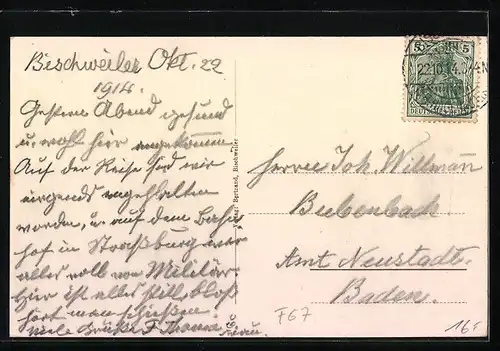 Bischweiler Okt. 22
1914.
Gestern Abend gesund
u. wohl hier angekommen
Auf der Reise sind wir
nirgends angehalten
worden, u. auf dem Bahn-
hof in Straßburg war
alles voll von Militär.
Hier ist alles still, bloß
hört man schießen.
viele Grüße F. Thoma u.
Frau.
Verlag Bertrand, Bischweiler
5 5
22.10.14.
Herrn Joh. Willmann
Bubenbach
Amt Neustadt.
Baden.
F67
16.-